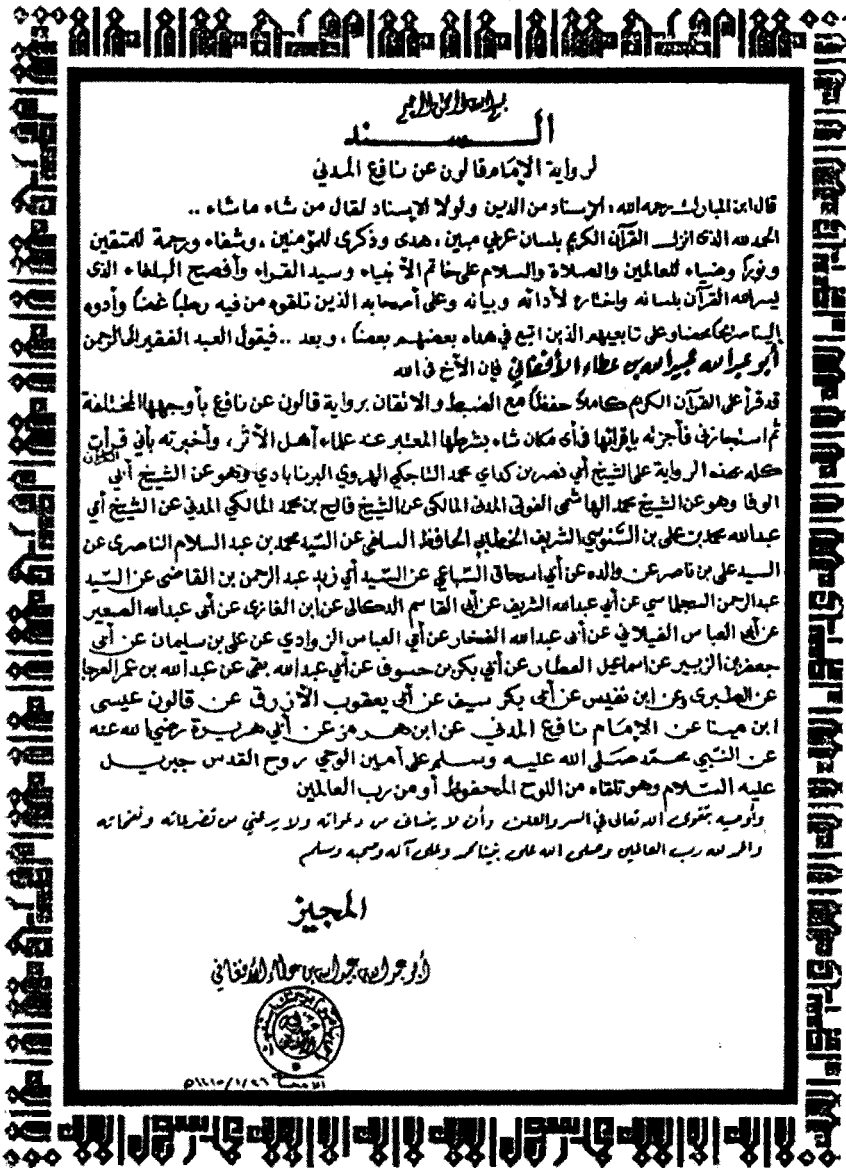 بسم الله الرحمن الرحيم
الـسـنـد
لرواية الإمام قالون عن نافع المدني
قال ابن المبارك رحمه الله: الإسناد من الدين ولولا الإسناد لقال من شاء ما شاء ..
الحمد لله الذى انزل القرآن الكريم بلسان عربي مبين، هدى وذكرى للمؤمنين، وشفاء ورحمة للمتقين
ونورا وضياء للعالمين والصلاة والسلام على خاتم الأنبياء وسيد القراء وأفصح البلغاء الذى
يسر الله القرآن بلسانه واختاره لأدائه وبيانه وعلى أصحابه الذين تلقوه من فيه رطبا غضا وأدوه
إلينا صريحا محضا وعلى تابعيهم الذين اتبع في هداه بعضهم بعضا، وبعد .. فيقول العبد الفقير إلى الرحمن
أبو عبد الله عبيد الله بن عطاء الأفغاني فإن الأخ في الله
قد قرأ على القرآن الكريم كاملا حفظا مع الضبط والاتقان برواية قالون عن نافع بأوجهها المختلفة
ثم استجازنى فأجزته بإقرائها فى أى مكان شاء بشرطها المعتبر عند علماء أهل الأثر، وأخبرته بأني قرأت القرآن
كله بهذه الرواية على الشيخ أبي نصر بن كداي محمد التاجكي الهروي البرنابادي وهو عن الشيخ أبي
الوفا وهو عن الشيخ محمد الهاشمى الفوتى المدنى المالكى عن الشيخ فالح بن محمد المالكي المدني عن الشيخ أبي
عبدالله محمد بن على بن السنوسي الشريف الخطابي الحافظ السلفى عن السيد محمد بن عبد السلام الناصرى عن
السيد على بن ناصر عن والده عن أبي اسحاق السباعي عن السيد أبي زيد عبد الرحمن بن القاضى عن السيد
عبد الرحمن السجلماسي عن أبي عبدالله الشريف عن أبي القاسم الدكالى عن ابن الغازى عن أبى عبدالله الصغير
عن أبي العباس الفيلالي عن أبى عبدالله الفخار عن أبي العباس الزواوي عن على بن سليمان عن أبي
جعفر بن الزبير عن اسماعيل العطار عن أبي بكر بن حسون عن أبي عبدالله بقى عن عبدالله بن عمر العرجا
عن الطبرى عن ابن نفيس عن أبى بكر سيف عن أبى يعقوب الأزرق عن قالون عيسى
ابن مينا عن الإمام نافع المدني عن ابن هرمز عن أبي هريرة رضي الله عنه
عن النبي محمد صلى الله عليه وسلم على أمين الوحي روح القدس جبريل
عليه السلام وهو تلقاه من اللوح المحفوظ أو من رب العالمين
وأوصيه بتقوى الله تعالى في السر والعلن وأن لا ينساني من دعواته ولا يدعني من تضرعاته ونفحاته
والحمد لله رب العالمين وصلى الله على نبينا محمد وعلى آله وصحبه وسلم
المجيز
أبو عبد الله عبيد الله بن عطاء الأفغاني